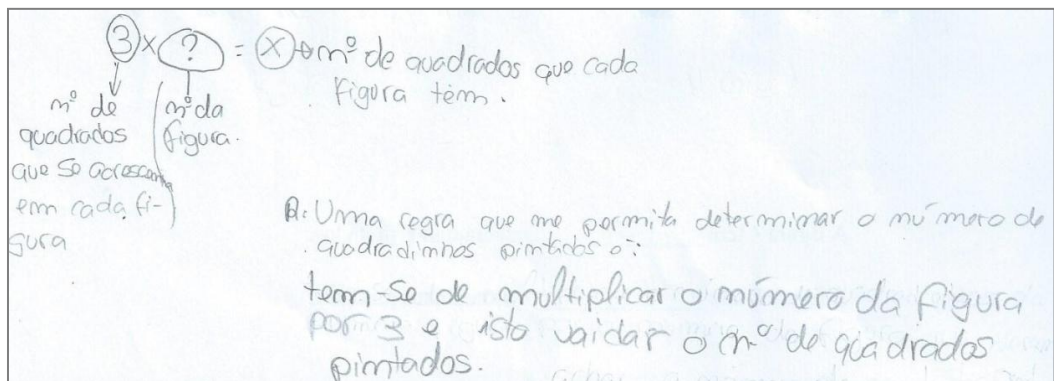 3 x ? = x → nº de quadrados que cada
figura têm.
nº de
quadrados
que se acrescenta
em cada fi-
gura
nº da
figura.
R: Uma regra que me permita determinar o número de
quadradinhos pintados é:
tem-se de multiplicar o número da figura
por 3 e isto vai dar o nº de quadrados
pintados.